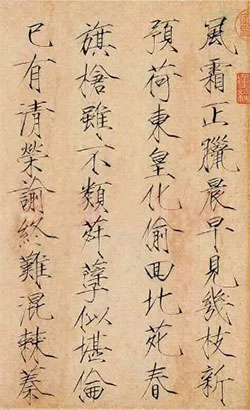 風霜正臘晨早見幾枝新
預荷東皇化偷囬北苑春
旗槍雖不類荈孽似堪倫
已有清榮諭終難混棘蓁